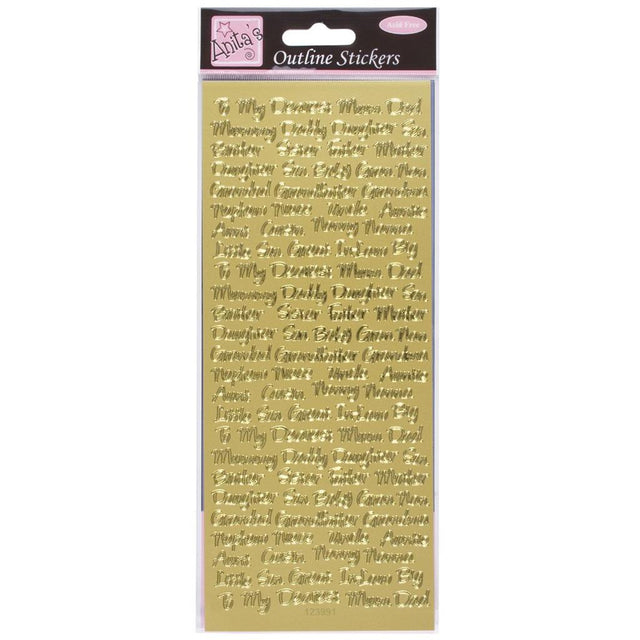 Anita's
Acid Free
Outline Stickers
To My Dearest Mum Dad
Mummy Daddy Daughter Son
Brother Sister Father Mother
Daughter Son Baby Gran Nan
Grandad Grandmother Grandson
Nephew Niece Uncle Auntie
Aunt Cousin Nanny
Little Great In-Law Big
To My Dearest Mum Dad
Mummy Daddy Daughter Son
Brother Sister Father Mother
Daughter Son Baby Gran Nan
Grandad Grandmother Grandson
Nephew Niece Uncle Auntie
Aunt Cousin Nanny
Little Great In-Law Big
To My Dearest Mum Dad
Mummy Daddy Daughter Son
Brother Sister Father Mother
Daughter Son Baby Gran Nan
Grandad Grandmother Grandson
Nephew Niece Uncle Auntie
Aunt Cousin Nanny
Little Great In-Law Big
To My Dearest Mum Dad
123991